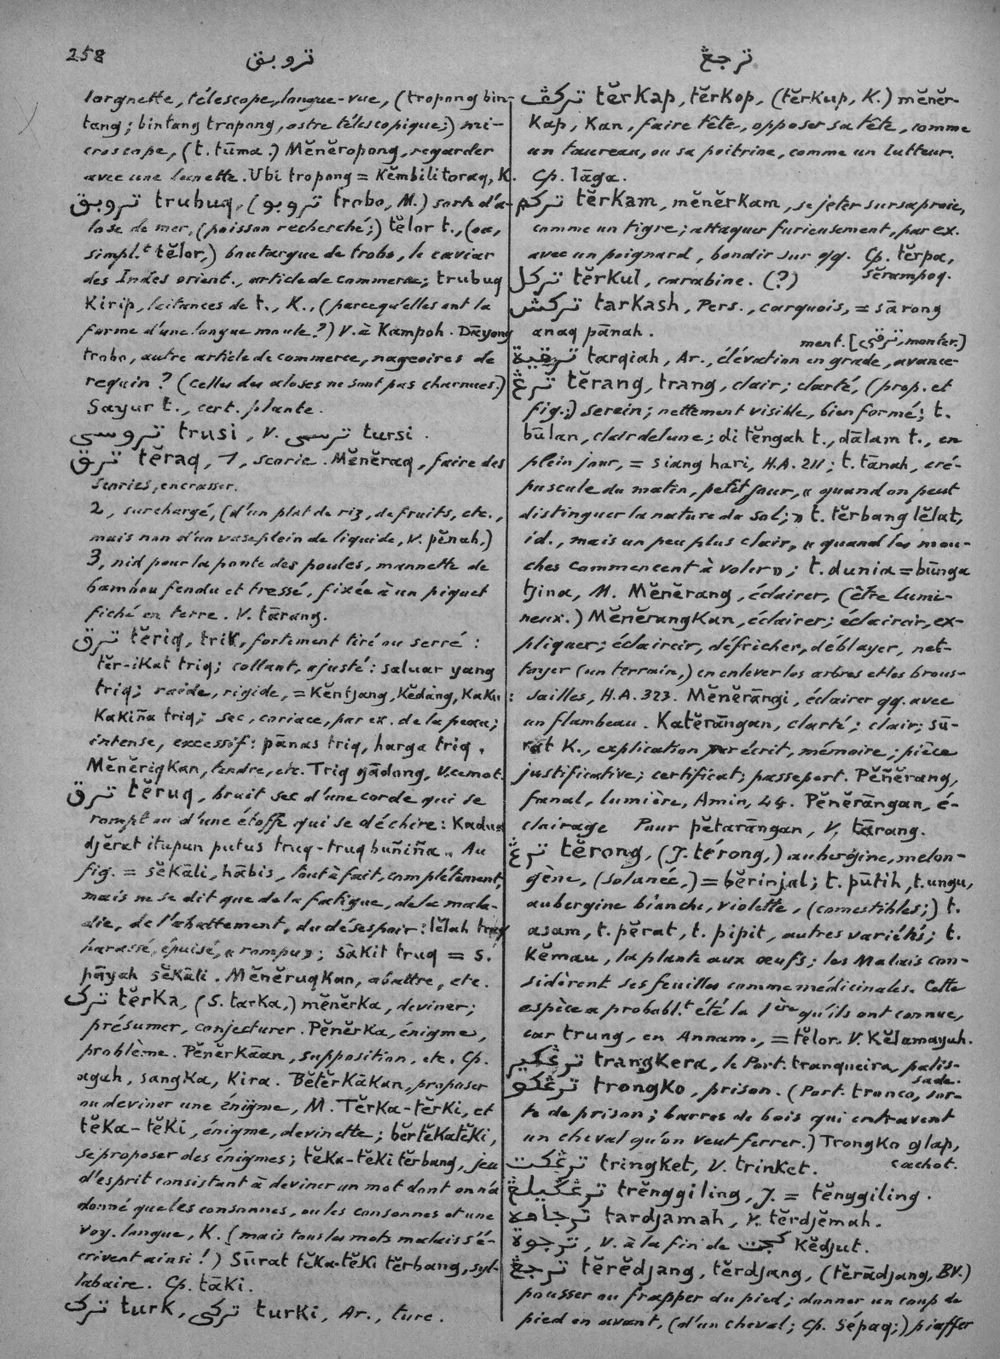 258
تروبق
ترجڠ
lorgnette, télescope, longue-vue, (tropong bin-
tang; bintang tropong, astre télescopique;) mi-
croscope, (t. tūma.) Mĕnĕropong, regarder
avec une lunette. Ubi tropong = Kĕmbili toraq, K.
تروبق trubuq, (تروبو trobo, M.) sorte d'a-
lose de mer, (poisson recherché;) tĕlor t., (ou,
simpl.t tĕlor,) boutargue de trobo, le caviar
des Indes orient., article de commerce; trubuq
Kirip, laitances de t., K., (parce qu'elles ont la
forme d'une longue moule?) V. à Kampoh. Dāyong
trobo, autre article de commerce, nageoires de
requin? (Celles des aloses ne sont pas charnues.)
Sayur t., cert. plante.
تروسي trusi, V. ترسي tursi.
ترق tĕraq, 1, scorie. Mĕnĕraq, faire des
scories, encrasser.
2, surchargé, (d'un plat de riz, de fruits, etc.,
mais non d'un vase plein de liquide, V. pĕnah.)
3, nid pour la ponte des poules, mannette de
bambou fendu et tressé, fixée à un piquet
fiché en terre. V. tārang.
ترق tĕriq, triK, fortement tiré ou serré:
tĕr-iKat triq; collant, ajusté: saluar yang
triq; raide, rigide, = Kĕntjang, Kĕdang, KaKu:
KaKiña triq; sec, coriace, par ex. de la peau;
intense, excessif: pānas triq, harga triq.
MĕnĕriqKan, tendre, etc. Triq gādong, V. ce mot.
ترق tĕruq, bruit sec d'une corde qui se
rompt ou d'une étoffe qui se déchire: Kadua
djĕrat itupun putus truq-truq buñiña. Au
fig. = sĕKāli, hābis, tout à fait, complétement,
mais ne se dit que de la fatigue, de la mala-
die, de l'abattement, du désespoir: lĕlah truq
harassé, épuisé, «rompu»; sāKit truq = s.
pāyah sĕKāli. MĕnĕruqKan, abattre, etc.
ترك tĕrKa, (S. tarKa,) mĕnĕrKa, deviner;
présumer, conjecturer. PĕnĕrKa, énigme,
problème. PĕnĕrKāan, supposition, etc. Cp.
aguh, sangKa, Kira. BĕtĕrKāKan, proposer
ou deviner une énigme, M. TĕrKa-tĕrKi, et
tĕKa-tĕKi, énigme, devinette; bĕrtĕKatĕKi,
se proposer des énigmes; tĕKa-tĕKi tĕrbang, jeu
d'esprit consistant à deviner un mot dont on n'a
donné que les consonnes, ou les consonnes et une
voy. longue, K. (mais tous les mots malais s'é-
crivent ainsi!) Sūrat tĕKa-tĕKi tĕrbang, syl-
labaire. Cp. tāKi.
ترك turK, تركي turKi, Ar., turc.
تركڤ tĕrKap, tĕrKop, (tĕrKup, K.) mĕnĕr-
Kap, Kan, faire tête, opposer sa tête, comme
un taureau, ou sa poitrine, comme un lutteur.
Cp. lāga.
تركم tĕrKam, mĕnĕrKam, se jeter sur sa proie,
comme un tigre; attaquer furieusement, par ex.
avec un poignard, bondir sur qq. Cp. tĕrpa,
sĕrampoq.
تركل tĕrKul, carabine. (?)
تركش tarKash, Pers., carquois, = sārong
anaq pānah.
ment. [ترقى, monter.]
ترقية tarqiah, Ar., élévation en grade, avance-
ترڠ tĕrang, trang, clair; clarté, (prop. et
fig.;) serein; nettement visible, bien formé; t.
būlan, clair de lune; di tĕngah t., dālam t., en
plein jour, = siang hari, H.A. 211; t. tānah, cré-
puscule du matin, petit jour, «quand on peut
distinguer la nature du sol;» t. tĕrbang lĕlat,
id., mais un peu plus clair, «quand les mou-
ches commencent à voler»; t. dunia = būnga
tjina, M. Mĕnĕrang, éclairer, (être lumi-
neux.) MĕnĕrangKan, éclairer; éclaircir, ex-
pliquer; éclaircir, défricher, déblayer, net-
toyer (un terrain,) en enlever les arbres et les brous-
sailles, H.A. 323. Mĕnĕrāngi, éclairer qq. avec
un flambeau. Katĕrāngan, clarté; clair; sū-
rat K., explication par écrit, mémoire; pièce
justificative; certificat; passeport. Pĕñĕrang,
fanal, lumière, Amin, 44. Pĕnĕrāngan, é-
clairage Pour pĕtarāngan, V. tārang.
ترڠ tĕrong, (J. térong,) aubergine, melon-
gène, (solanée,) = bĕrinjal; t. pūtih, t. ungu,
aubergine blanche, violette, (comestibles;) t.
asam, t. pĕrat, t. pipit, autres variétés; t.
Kĕmau, la plante aux œufs; les Malais con-
sidèrent ses feuilles comme médicinales. Cette
espèce a probabl.t été la 1ère qu'ils ont connue,
car trung, en Annam., = tĕlor. V. Kĕlamayuh.
ترڠكير trangKera, le Port. tranqueira, palis-
sade.
ترڠكو trongKo, prison. (Port. tronco, sor-
te de prison; barres de bois qui entravent
un cheval qu'on veut ferrer.) TrongKo glap,
cachot.
ترڠكت tringKet, V. trinKet.
ترڠݢيلڠ trĕnggiling, J. = tĕnggiling.
ترجامه tardjamah, V. tĕrdjĕmah.
ترجوة, V. à la fin de كجت Kĕdjut.
ترجڠ tĕrĕdjang, tĕrdjang, (tĕrādjang, BV.)
pousser ou frapper du pied; donner un coup de
pied en avant, (d'un cheval; Cp. sépaq;) piaffer